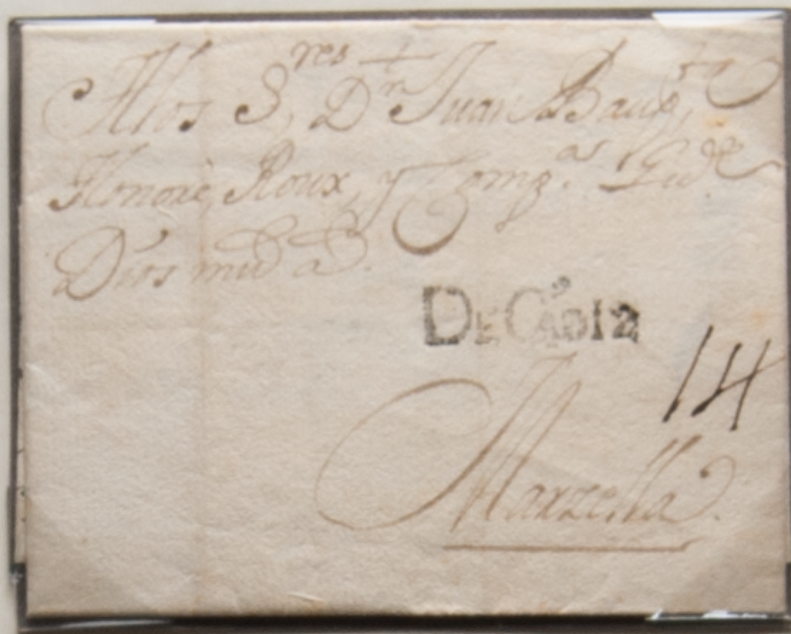 A los S.res Dn Juan Baup.ta
Honore Roux, y Comp.as Gu.de
Dios m.s a.s
DE CADIZ
14
Marzella